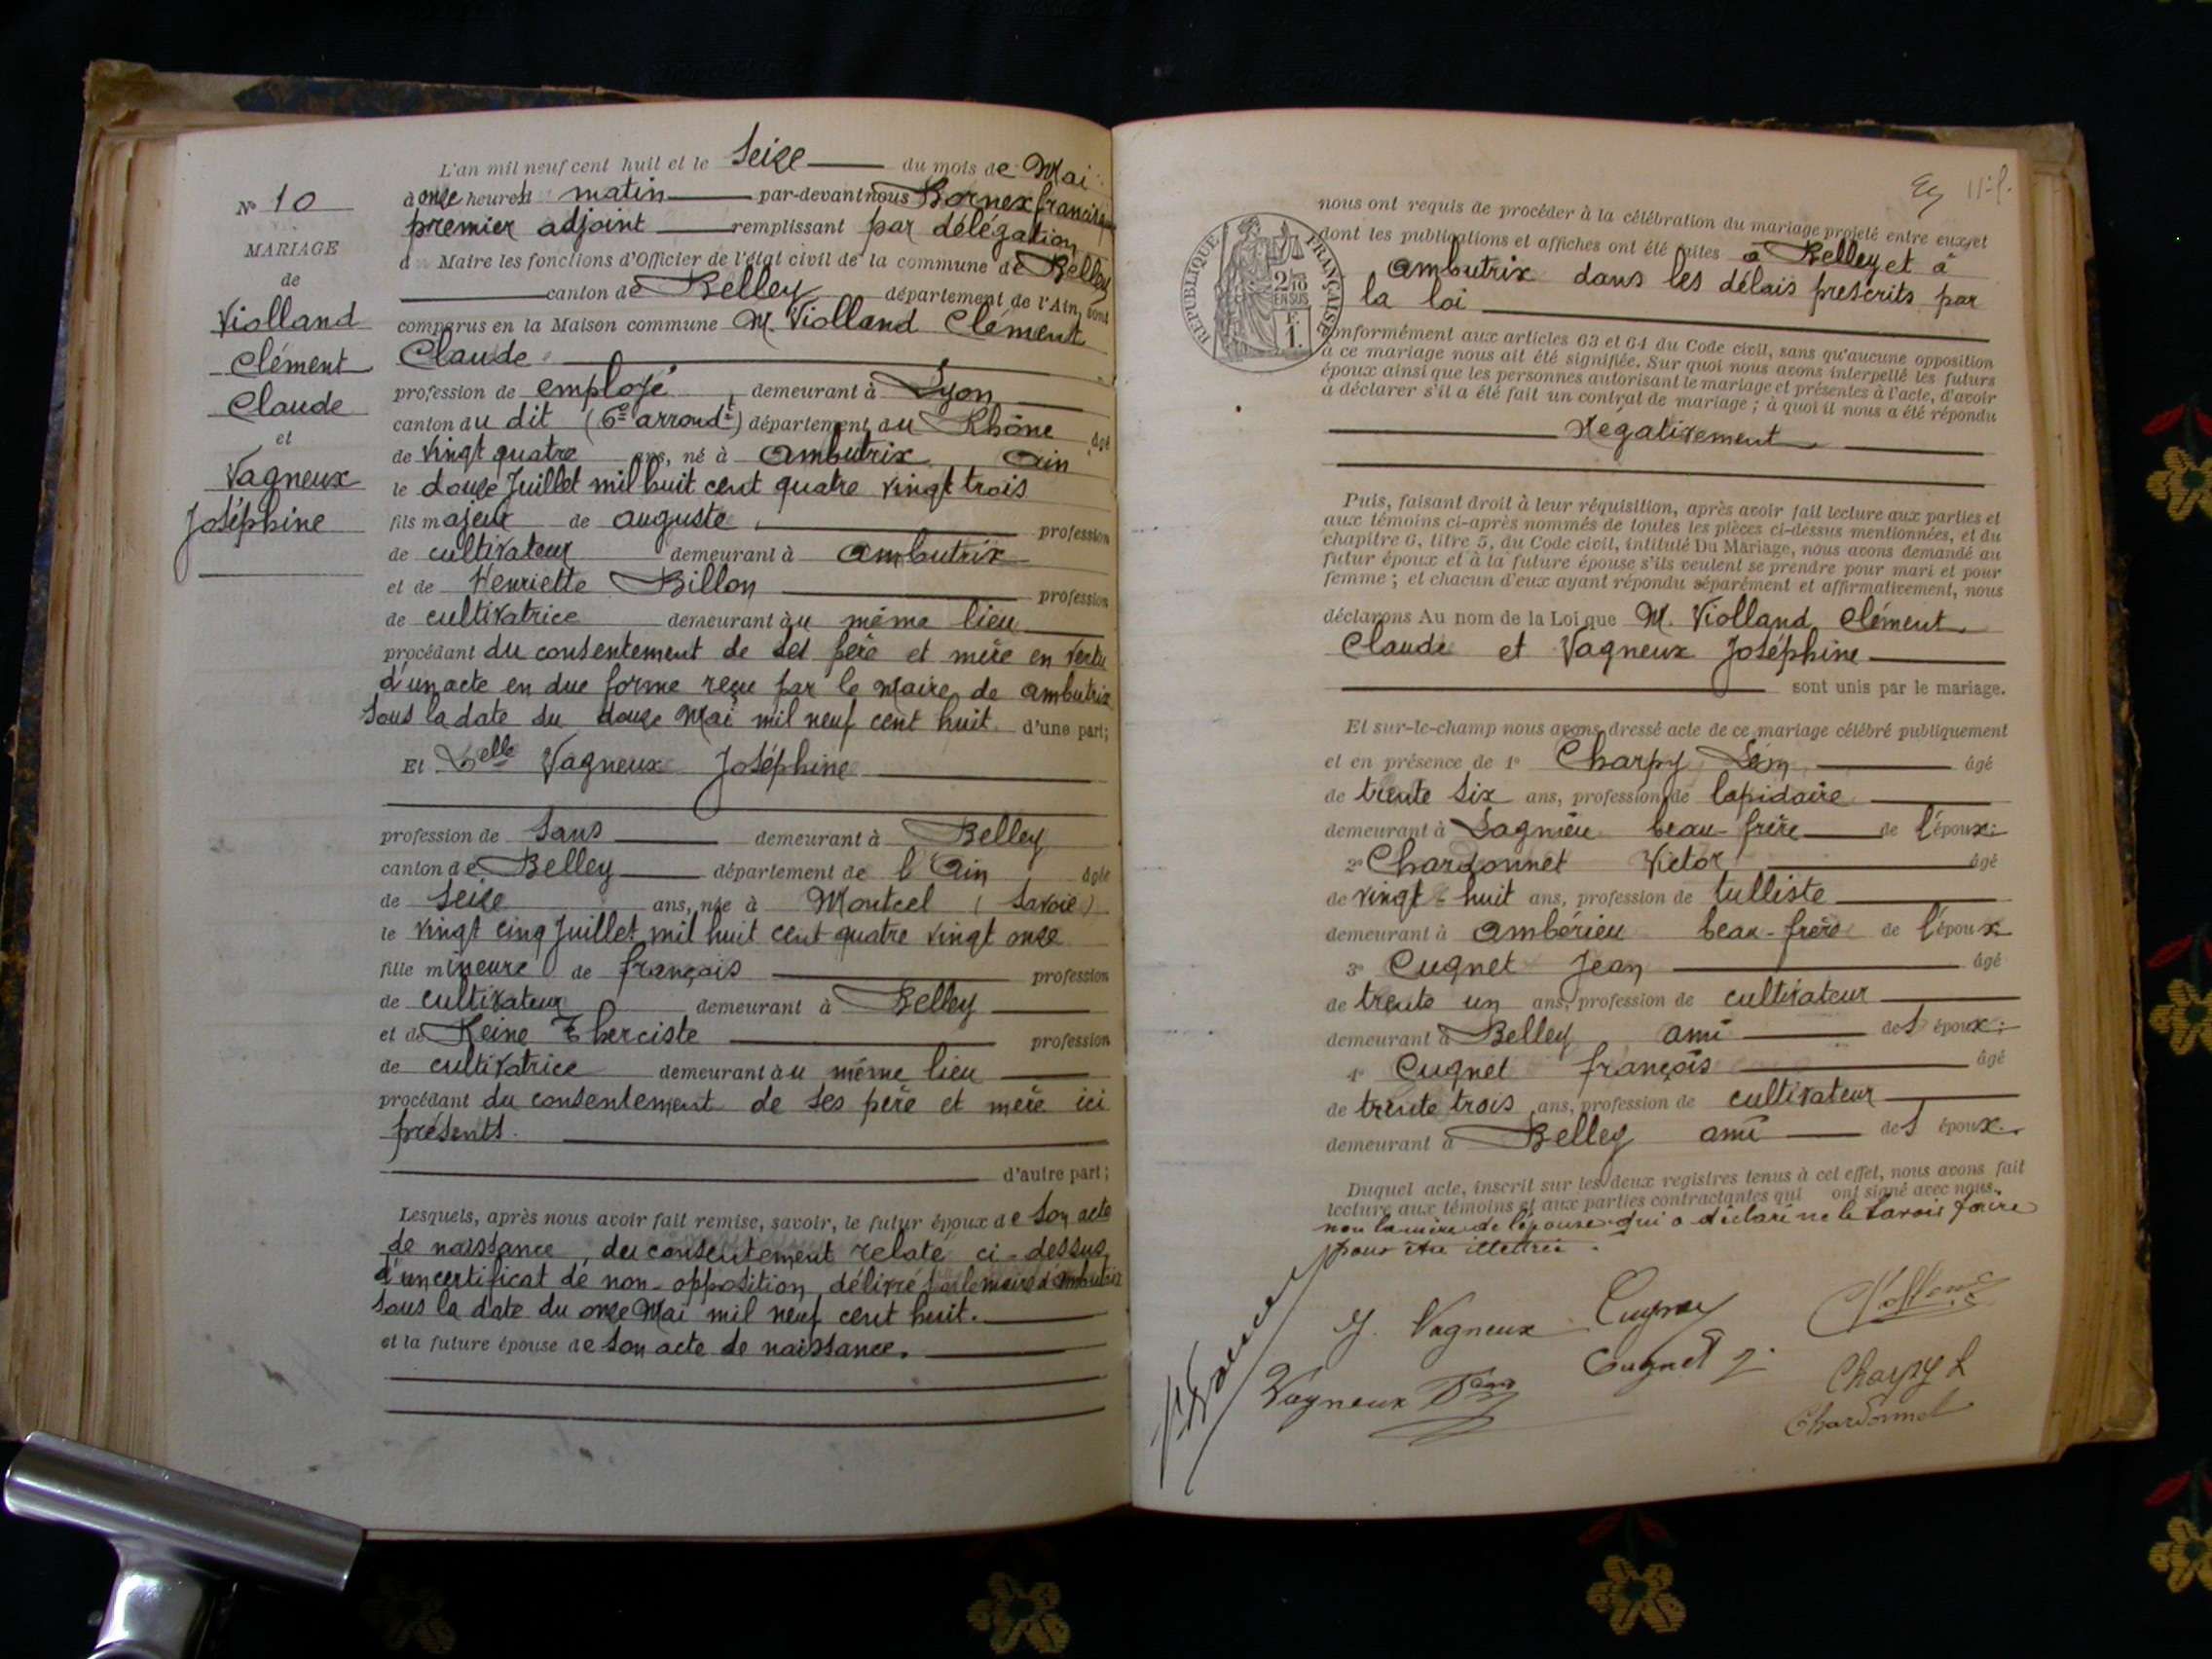 N° 10
MARIAGE
de
Violland
Clément
Claude
et
Vagneux
Joséphine
L'an mil neuf cent huit et le Seize du mois de Mai
à onze heures matin par-devant nous Bornex
premier adjoint remplissant par délégation
d Maire les fonctions d'Officier de l'état civil de la commune de Belley
canton de Belley département de l'Ain, sont
comparus en la Maison commune M. Violland Clément
Claude
profession de employé, demeurant à Lyon
canton du dit (6e arrondt) département du Rhône âgé
de vingt quatre ans, né à Ambutrix Ain
le douze Juillet mil huit cent quatre vingt trois
fils majeur de auguste, profession
de cultivateur demeurant à Ambutrix
et de Henriette Billon profession
de cultivatrice demeurant au même lieu
procédant du consentement de ses père et mère en vertu
d'un acte en due forme reçu par le Maire de Ambutrix
sous la date du douze Mai mil neuf cent huit. d'une part;
Et Delle Vagneux Joséphine
profession de Sans demeurant à Belley
canton de Belley département de l'Ain âgée
de Seize ans, née à Montcel (Savoie)
le vingt cinq Juillet mil huit cent quatre vingt onze
fille mineure de françois profession
de cultivateur demeurant à Belley
et de Reine Therciste profession
de cultivatrice demeurant au même lieu
procédant du consentement de ses père et mère ici
présents.
d'autre part;
Lesquels, après nous avoir fait remise, savoir, le futur époux de son acte
de naissance, du consentement relaté ci-dessus,
d'un certificat de non-opposition, délivré par le maire d'Ambutrix
sous la date du onze Mai mil neuf cent huit.
et la future épouse de son acte de naissance.
11 f.
RÉPUBLIQUE FRANÇAISE
2/10
EN SUS
F.
1.
nous ont requis de procéder à la célébration du mariage projeté entre eux, et
dont les publications et affiches ont été faites à Belley et à
Ambutrix dans les délais prescrits par
la loi
conformément aux articles 63 et 64 du Code civil, sans qu'aucune opposition
à ce mariage nous ait été signifiée. Sur quoi nous avons interpellé les futurs
époux ainsi que les personnes autorisant le mariage et présentes à l'acte, d'avoir
à déclarer s'il a été fait un contrat de mariage; à quoi il nous a été répondu
Négativement
Puis, faisant droit à leur réquisition, après avoir fait lecture aux parties et
aux témoins ci-après nommés de toutes les pièces ci-dessus mentionnées, et du
chapitre 6, titre 5, du Code civil, intitulé Du Mariage, nous avons demandé au
futur époux et à la future épouse s'ils veulent se prendre pour mari et pour
femme; et chacun d'eux ayant répondu séparément et affirmativement, nous
déclarons Au nom de la Loi que M. Violland Clément
Claude et Vagneux Joséphine
sont unis par le mariage.
Et sur-le-champ nous avons dressé acte de ce mariage célébré publiquement
et en présence de 1° Charpy âgé
de trente six ans, profession de lapidaire
demeurant à Lagnieu beau-frère de l'époux;
2° Chardonnet Victor âgé
de vingt huit ans, profession de tulliste
demeurant à Ambérieu beau-frère de l'époux
3° Cugnet Jean âgé
de trente un ans, profession de cultivateur
demeurant à Belley ami des époux;
4° Cugnet françois âgé
de trente trois ans, profession de cultivateur
demeurant à Belley ami des époux.
Duquel acte, inscrit sur les deux registres tenus à cet effet, nous avons fait
lecture aux témoins et aux parties contractantes qui ont signé avec nous,
non la mère de l'épouse qui a déclaré ne le savoir faire
pour être illettrée.
J. Vagneux Cugnet
Cugnet J.
Vagneux Charpy L
Chardonnet